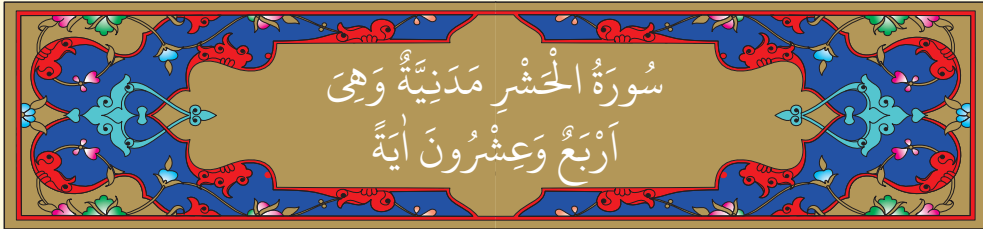 سُورَةُ الْحَشْرِ مَدَنِيَّةٌ وَهِىَ
اَرْبَعٌ وَعِشْرُونَ اٰيَةً